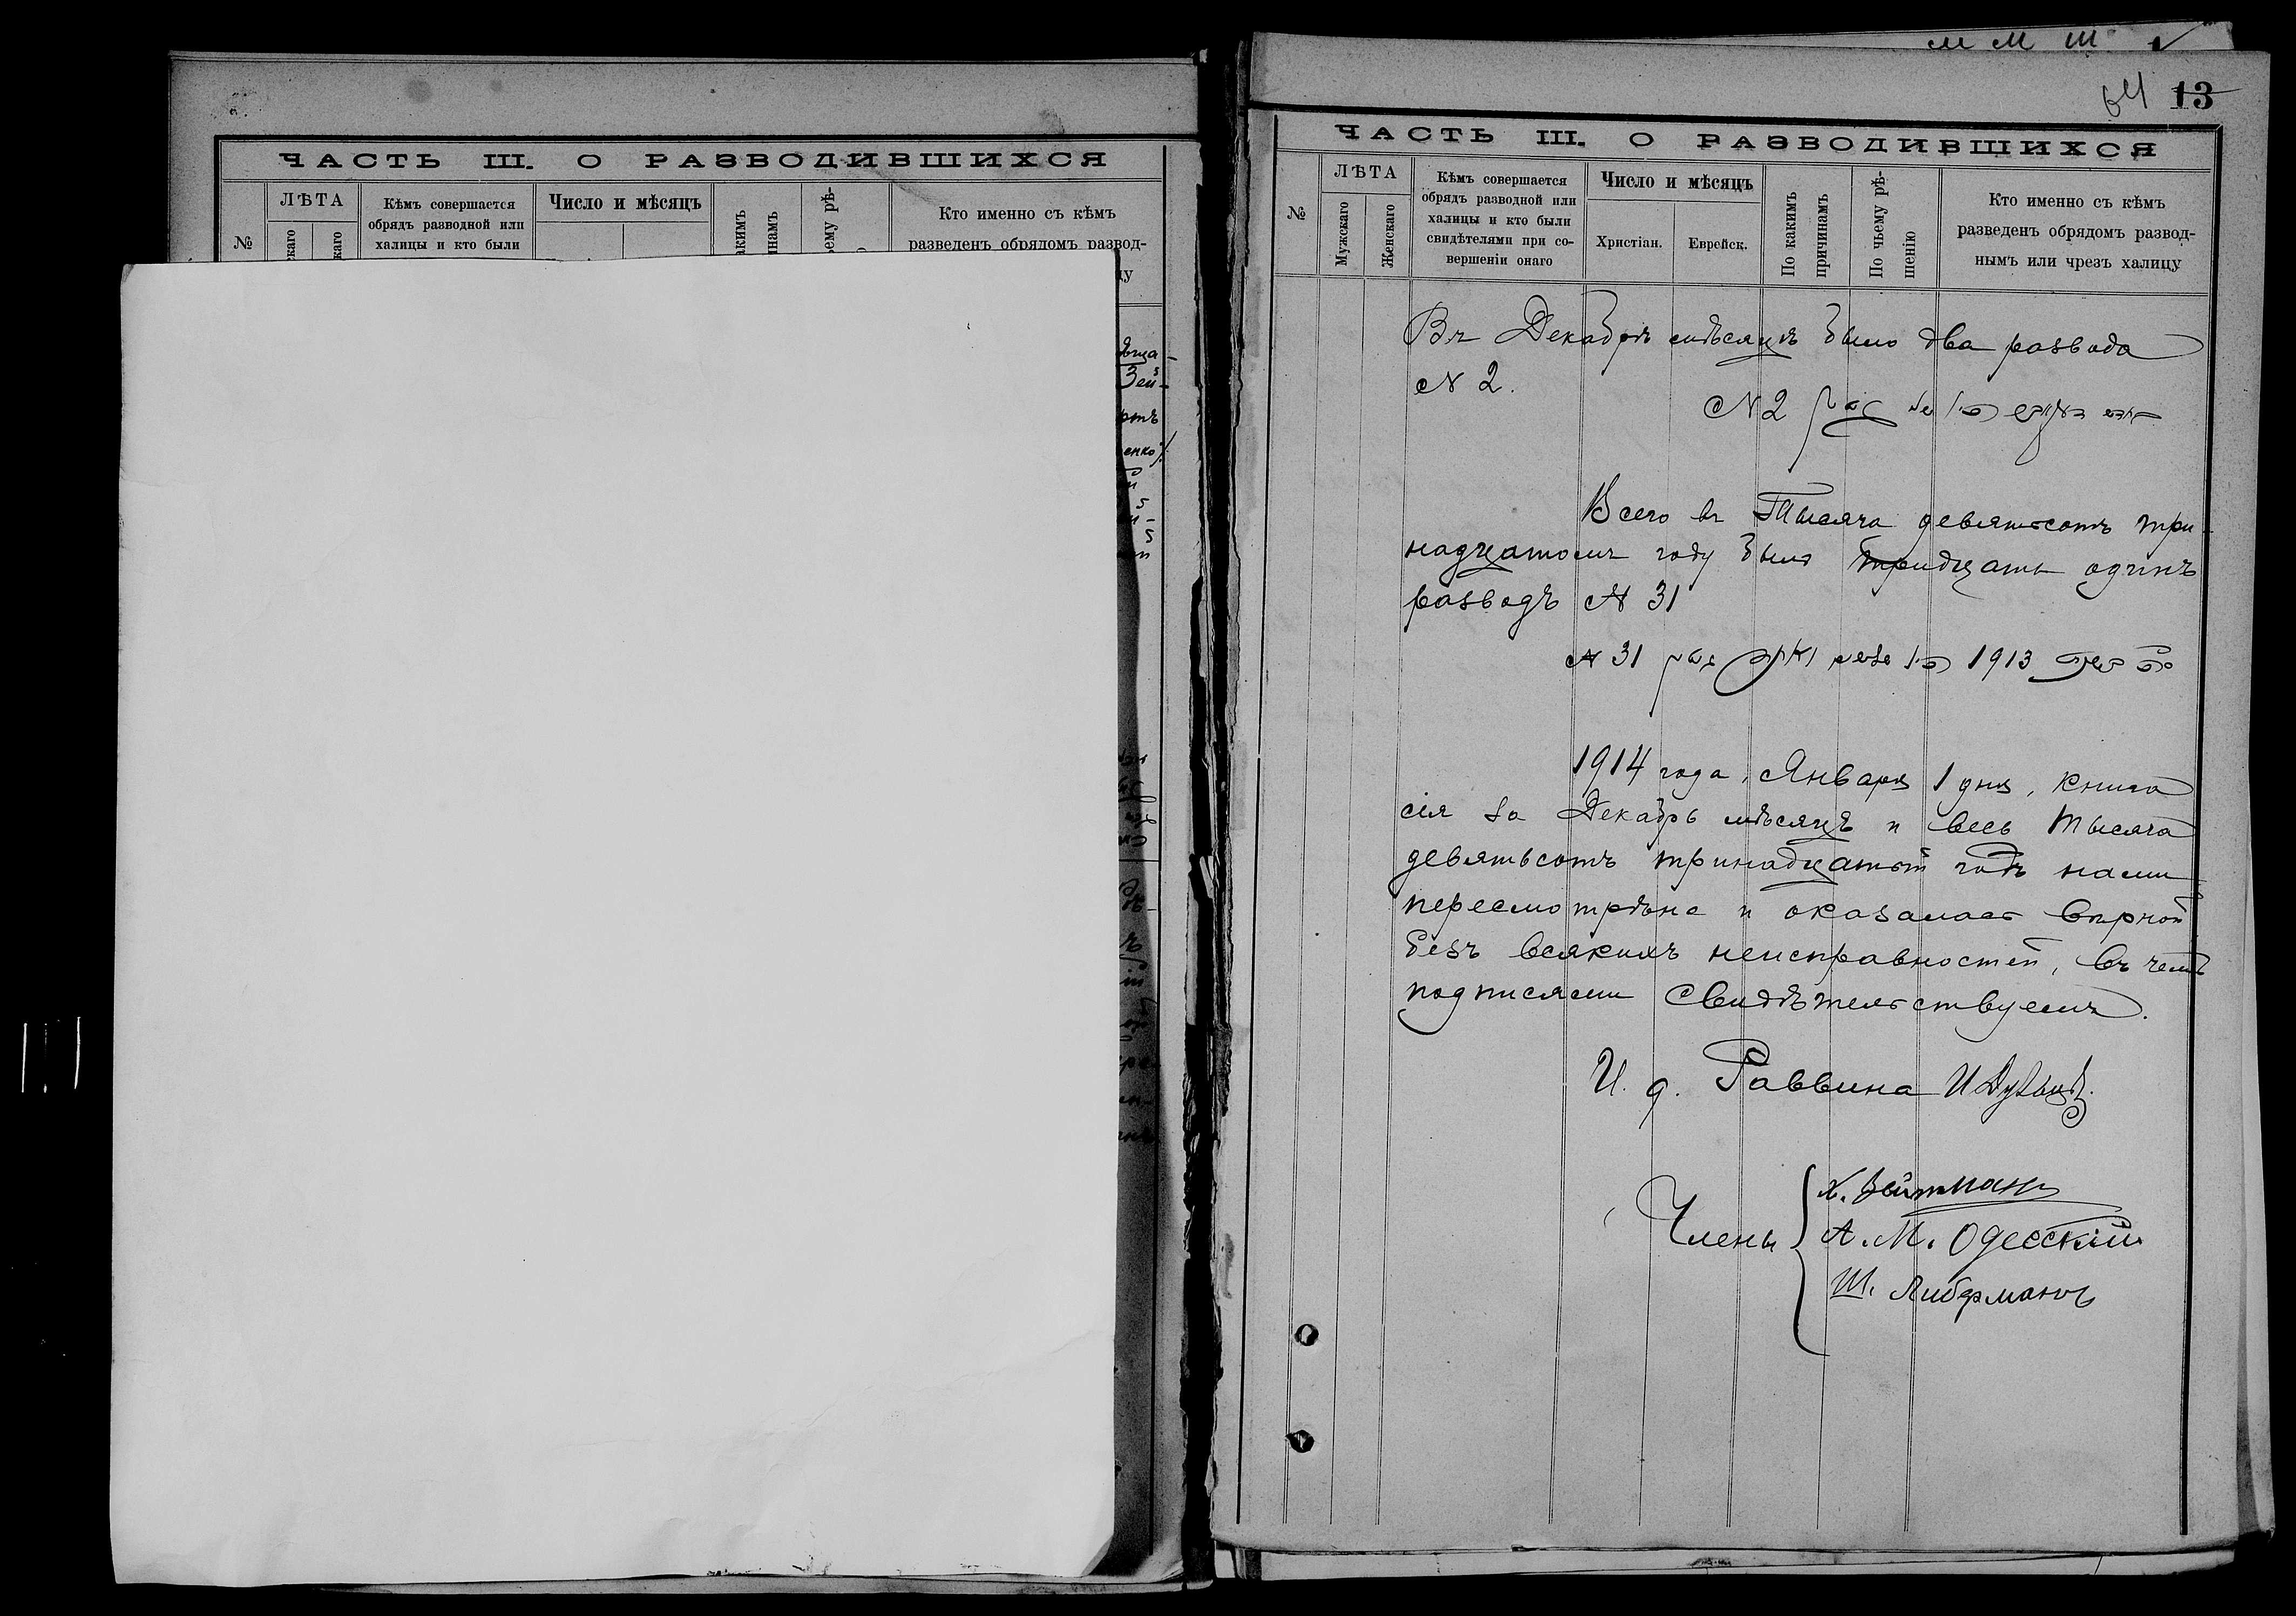 ЧАСТЬ III. О РАЗВОДИВШИХСЯ
№
ЛѢТА
Кѣмъ совершается
обрядъ разводной или
халицы и кто были
Число и мѣсяцъ
Кто именно съ кѣмъ
разведенъ обрядомъ развод-
64 13
ЧАСТЬ III. О РАЗВОДИВШИХСЯ
№
ЛѢТА
Мужскаго
Женскаго
Кѣмъ совершается
обрядъ разводной или
халицы и кто были
свидѣтелями при со-
вершеніи онаго
Число и мѣсяцъ
Христіан.
Еврейск.
По какимъ
причинамъ
По чьему рѣ-
шенію
Кто именно съ кѣмъ
разведенъ обрядомъ развод-
нымъ или чрезъ халицу
Въ Декабрѣ мѣсяцѣ было два развода
№ 2.
№ 2
Всего въ Тысяча девятьсотъ три-
надцатомъ году былъ тридцать одинъ
разводъ № 31
№ 31 1913
1914 года, Января 1 дня, книга
сія за Декабрь мѣсяцъ и весь тысяча
девятьсотъ тринадцатый годъ нами
пересмотрѣна и оказалась вѣрной
безъ всякихъ неисправностей, въ чемъ
подписями свидѣтельствуемъ.
И. д. Раввина
Члены
Х. Вейтманъ
А. М. Одесскій
Ш. Либерманъ